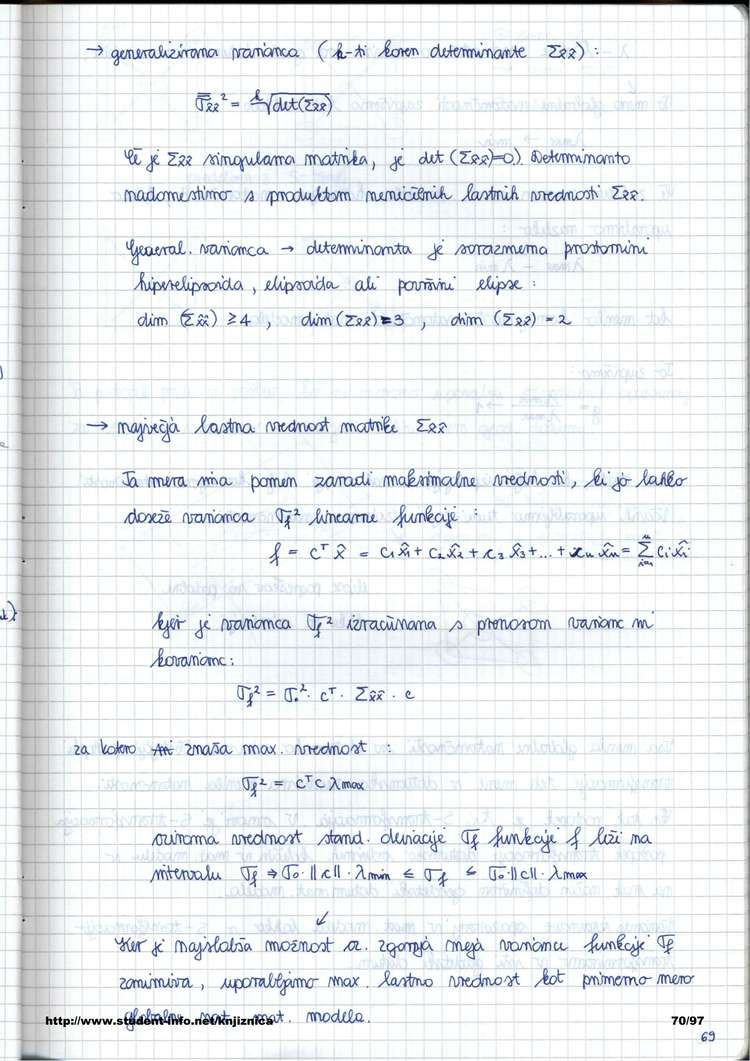 → generalizirana varianca (k-ti koren determinante Σx̂x̂) :
σ̿x̂x̂² = ᵏ√det(Σx̂x̂)
Če je Σx̂x̂ singularna matrika, je det (Σx̂x̂)=0). Determinanto
nadomestimo s produktom neničelnih lastnih vrednosti Σx̂x̂.
General. varianca → determinanta je sorazmerna prostornini
hiperelipsoida, elipsoida ali površini elipse :
dim (Σx̂x̂) ≥ 4 , dim (Σx̂x̂) = 3 , dim (Σx̂x̂) = 2
→ največja lastna vrednost matrike Σx̂x̂
Ta mera ima pomen zaradi maksimalne vrednosti, ki jo lahko
doseže varianca σf² linearne funkcije :
f = cᵀ x̂ = c₁x̂₁ + c₂x̂₂ + c₃x̂₃ + ... + cₙx̂ₙ = Σ cᵢx̂ᵢ
kjer je varianca σf² izračunana s prenosom varianc in
kovarianc:
σf² = σ₀² · cᵀ · Σx̂x̂ · c
za katero znaša max. vrednost :
σf² = cᵀc λmax
oziroma vrednost stand. deviacije σf funkcije f leži na
intervalu σf ⇒ σ₀·||c||·λmin ≤ σf ≤ σ₀·||c||·λmax
↙
Ker je najslabša možnost oz. zgornja meja variance funkcije σf
zanimiva, uporabljamo max. lastno vrednost kot primerno mero
globalne nat. mat. modela.
http://www.student-info.net/knjiznica 70/97
69